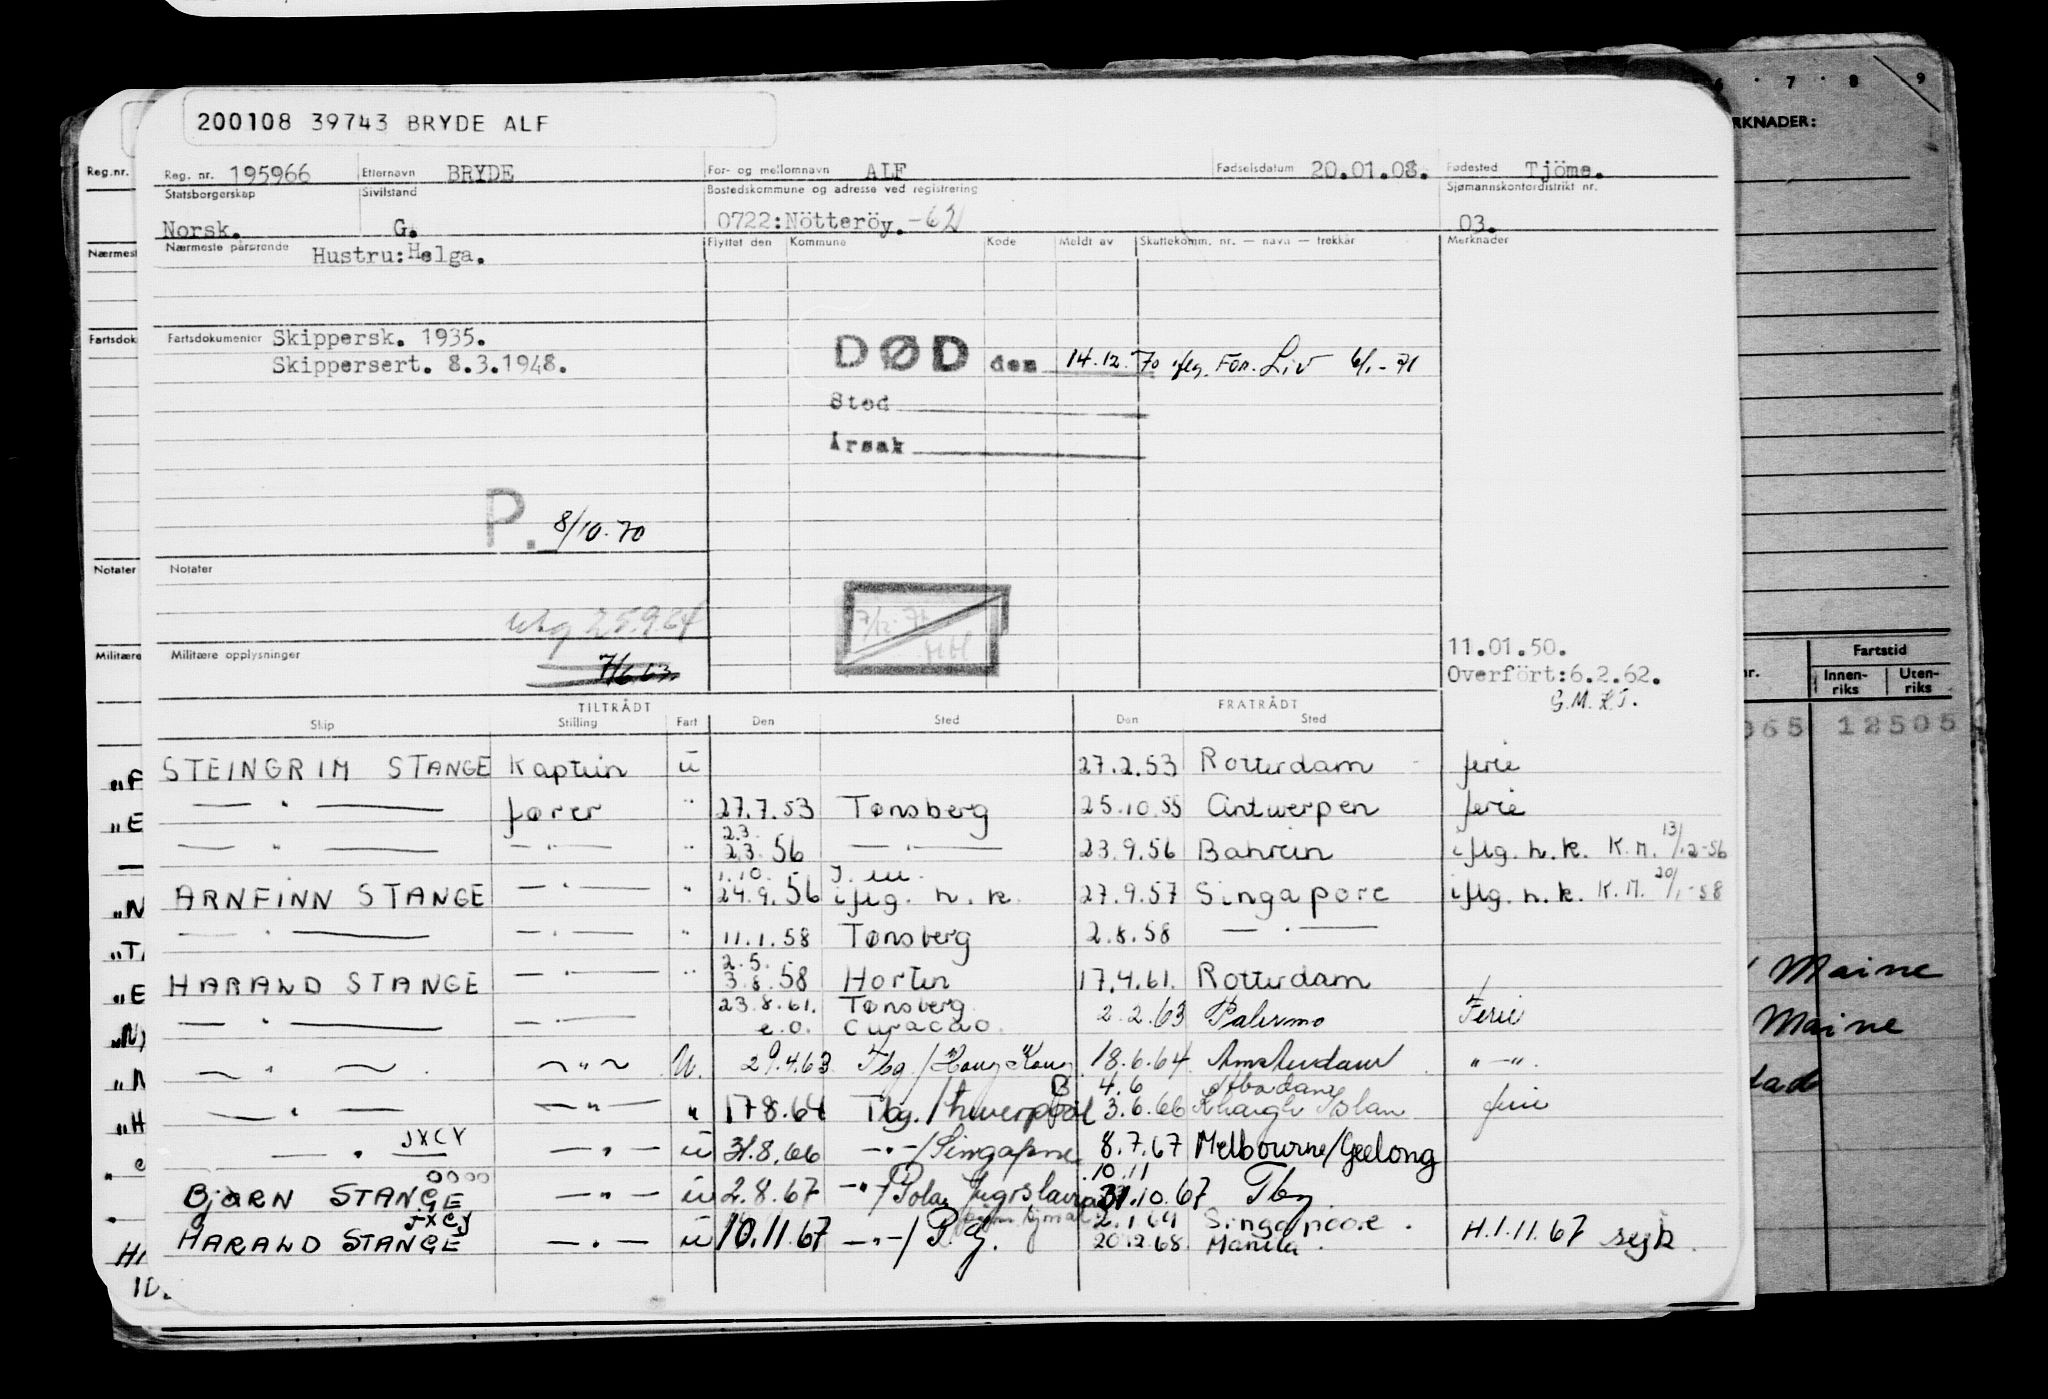 6 · 7 · 8 9
RKNADER:
200108 39743 BRYDE ALF
Reg.nr.
Reg. nr. 195966 Etternavn BRYDE For- og mellomnavn ALF Fødselsdatum 20.01.08. Fødested Tjöme.
Statsborgerskap Sivilstand Bostedskommune og adresse ved registrering Sjømannskontordistrikt nr.
Norsk. G. 0722:Nötteröy. -62 03.
Nærmest
Nærmeste pårørende Hustru:Helga. Flyttet den Kommune Kode Meldt av Skattekomm. nr. — navn — trekkår Merknader
Fartsdok
Fartsdokumenter Skippersk. 1935.
Skippersert. 8.3.1948.
DØD den 14.12.70 iflg. For. Liv 6/1-71
Sted
Årsak
P. 8/10.70
Notater
Notater
7/12.71
Militære
Militære opplysninger
11.01.50.
Overfört:6.2.62.
Fartstid
nr. Innen-riks Uten-riks
065 12505
TILTRÅDT FRATRÅDT
Skip Stilling Fart Den Sted Den Sted
STEINGRIM STANGE Kaptein u 27.2.53 Rotterdam ferie
— " — fører " 27.7.53 Tønsberg 25.10.55 Antwerpen ferie
— " — — " — " 2.3.56 — " — 23.9.56 Bahrein iflg. h.k. K.M. 13/12-56
ARNFINN STANGE — " — " 24.9.56 iflg. h.k. 27.9.57 Singapore iflg. h.k. K.M. 20/1-58
— " — — " — " 11.1.58 Tønsberg 2.8.58 — " —
2.5.
HARALD STANGE — " — " 3.8.58 Horten 17.4.61. Rotterdam
— " — — " — 23.8.61. Tønsberg 2.2.63 Palermo Ferie
e.o. Curacao.
— " — — " — U. 29.4.63 Tbg/Hong Kong 18.6.64 Amsterdam " — "
4.6 Abadan
— " — — " — " 17.8.64 Tbg./Liverpool 3.6.66 Kharg Islan ferie
JXCY
— " — — " — u 31.8.66 — " —/Singapore 8.7.67 Melbourne/Geelong
10.11
BJØRN STANGE — " — u 2.8.67 — " —/Pola Jugoslavia 31.10.67 Tbg
JXCY
HARALD STANGE — " — u 10.11.67 — " —/P.G. 20.12.68. Manila. H.1.11.67 syk
2.1.69 Singapore.
Maine
Maine